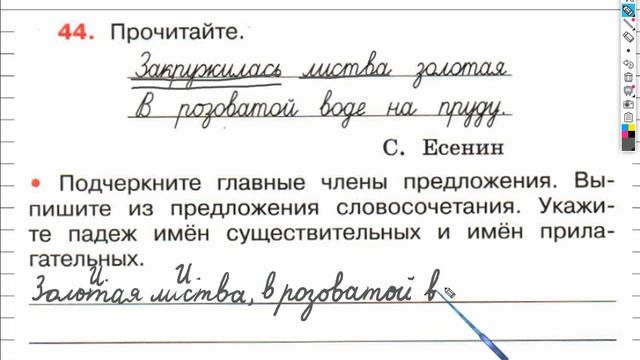 44. Прочитайте.
Закружилась листва золотая
В розоватой воде на пруду.
С. Есенин
• Подчеркните главные члены предложения. Вы-
пишите из предложения словосочетания. Укажи-
те падеж имён существительных и имён прила-
гательных.
И. И.
Золотая листва, в розоватой в